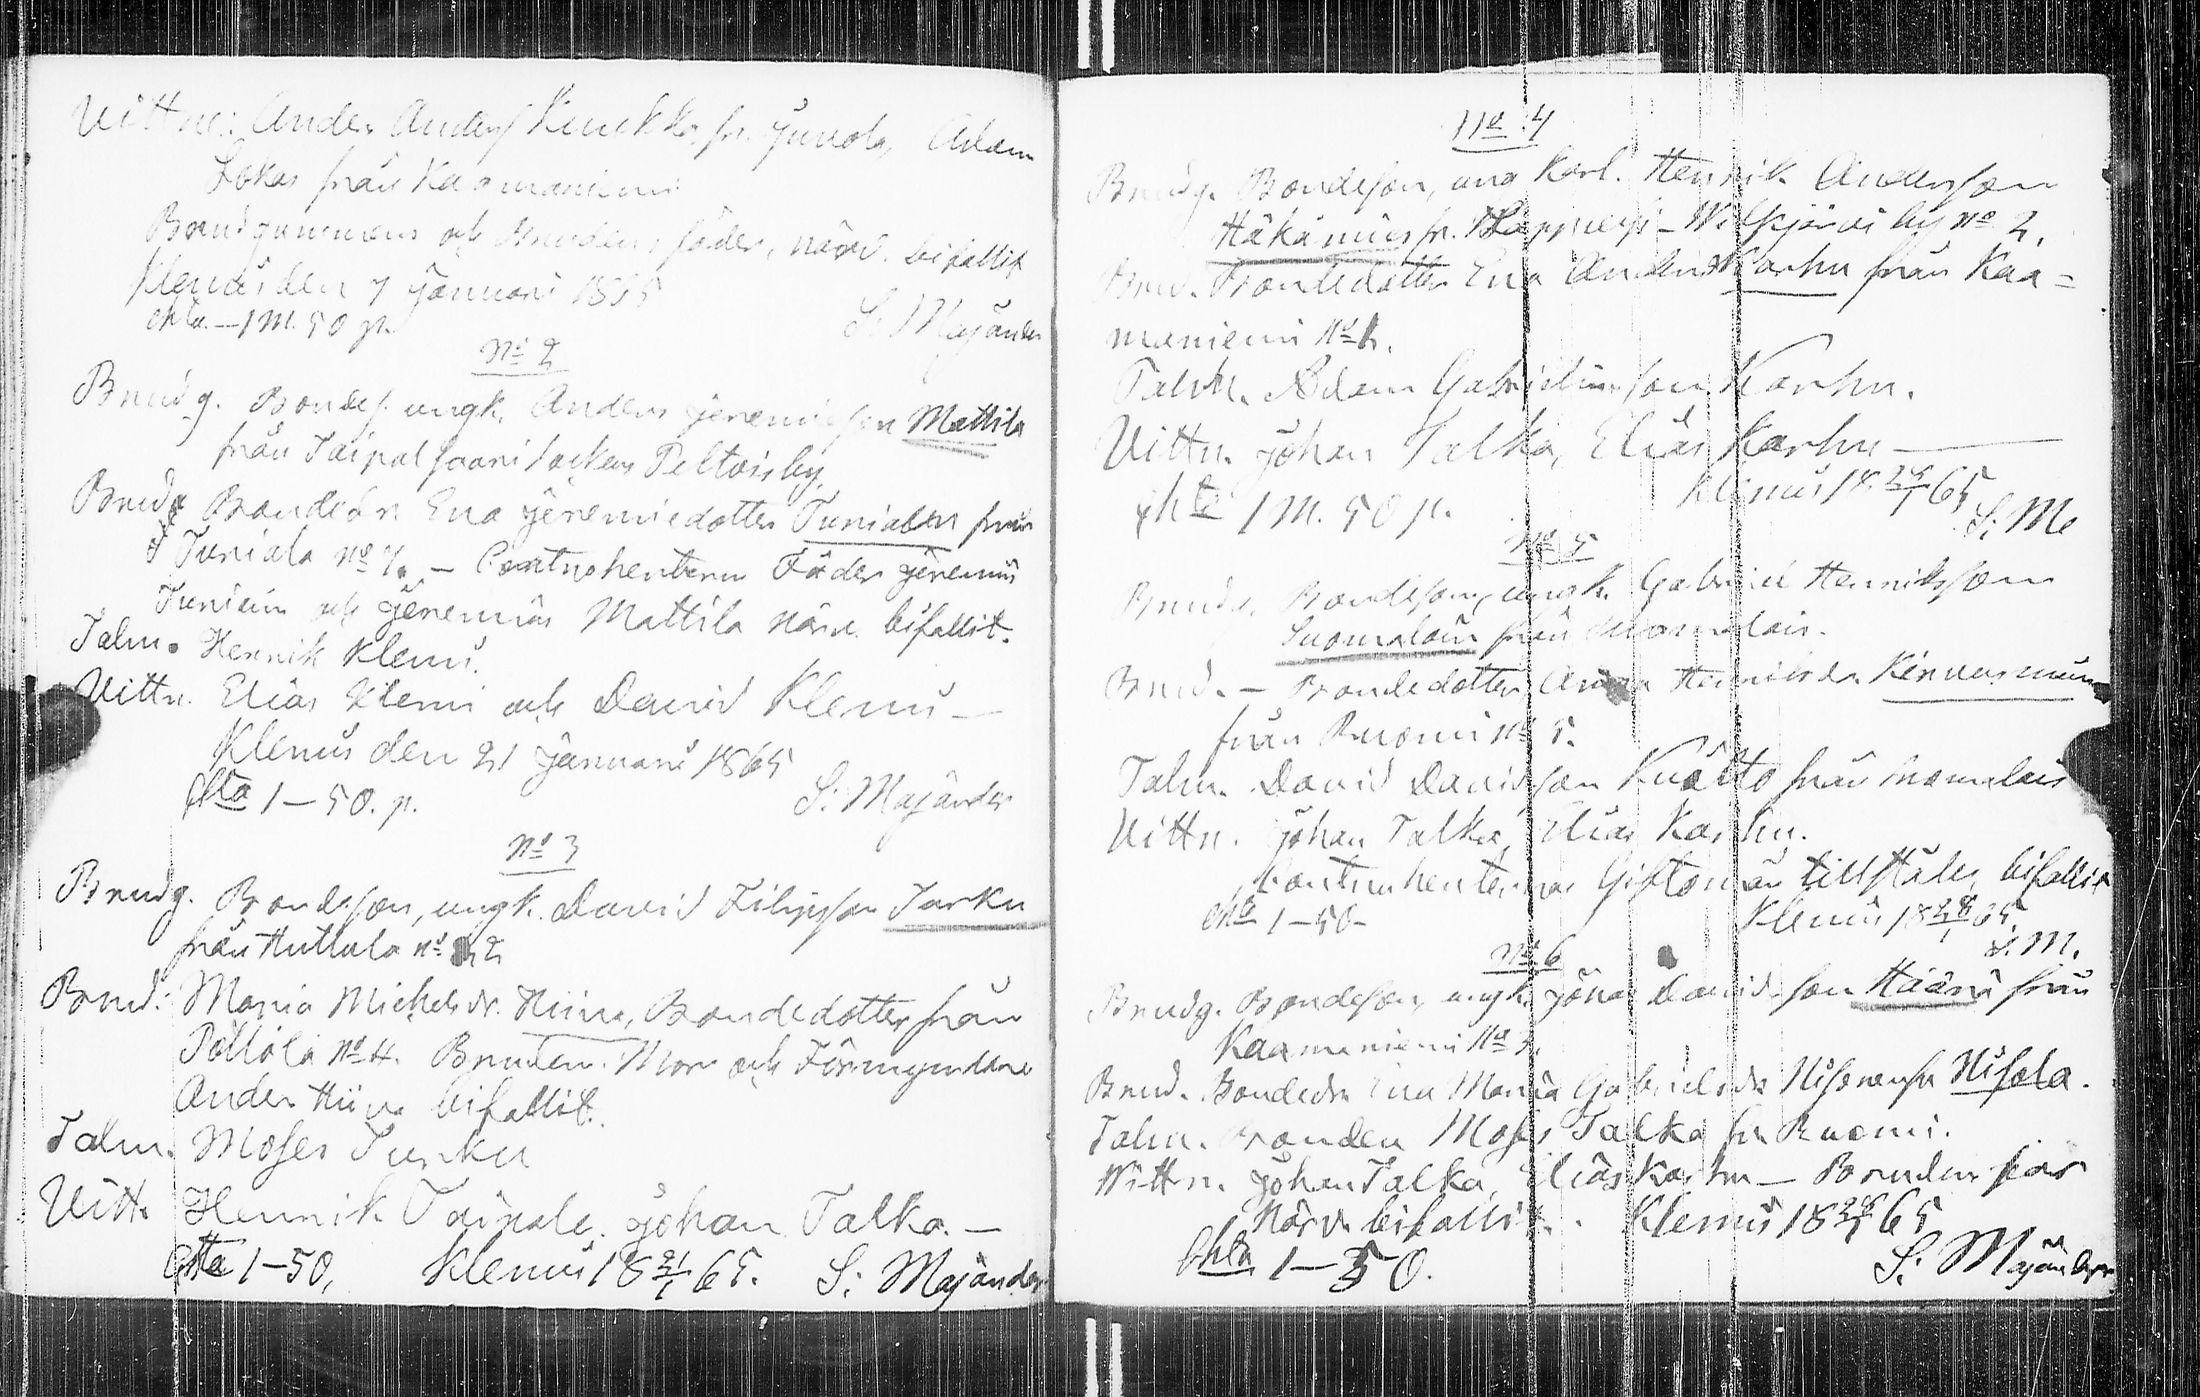 Vittne: Anders Anders Kinukka fr. Juvola, Adam
Lokas från Kaamaniemi
Brudgummens och Brudens fäder, närv. bifallit
Klemis den 7 Januari 1865
1 M. 50 p. S: Majander
No 2
Brudg. Bondes. ungk. Anders Jeremiesson Mattila
från Taipalsaari sockens Peltois by
Brud Bondedr. Eva Jeremiedotter Tuniain från
Tuniala No 7. – Contrahenternes Fäder Jeremias
Tuniain och Jeremias Mattila närv. bifallit.
Talm. Henrik Klemi.
Vittn. Elias Klemi och David Klemi –
Klemis den 21 Januari 1865
1–50. p. S: Majander
No 3
Brudg. Bondeson, ungk. David Filipsson Turku
från Huttula No 2
Brud: Maria Michelsdr. Hiina, Bondedotter från
Pöllölä No 4. Brudens Mor och Förmyndare
Anders Hiiva bifallit.
Talm. Moses Turku
Vittn Henrik Taipale, Johan Talka. –
1–50, Klemis 18 21/1 65. S: Majander
No 4
Brudg. Bondeson, ung Karl. Henrik Andersson
Häkämies fr. Lappvesi – Wilkjärvi by No 2.
Brud. Bondedotter Eva Anders Karhu från Kaa=
maniemi No
Talm. Adam Gabrielsson Karhu.
Vittn. Johan Talka, Elias Karhu –
1 M. 50 p. Klemis 18 28/1 65
S: M
No 5
Brudg. Bondeson, ungk. Gabriel Henriksson
Suomalain från Suomalais.
Brud. – Bondedotter Anna Henriksdr. Kirvesmies
från Ruomi No 5.
Talm. David Davidsson Kuätto från Suomalais
Vittn. Johan Talka, Elias Karhu.
Contrahenternas Giftomän tillstäles bifallit
1–50– Klemis 18 28/1 65
S. M.
No 6
Brudg. Bondeson, ungk. Jonas Davidsson Hääni från
Kaamaniemi No 3.
Brud. Bondedr. Eva Maria Gabrielsdr Hisonen fr Hisola.
Talm. Bonden Moses Talka fr. Ruomi.
Wittn. Johan Talka, Elias Karhu – Brudens far
Närv. bifallit. Klemis 18 28/1 65
1–50. S: Majander